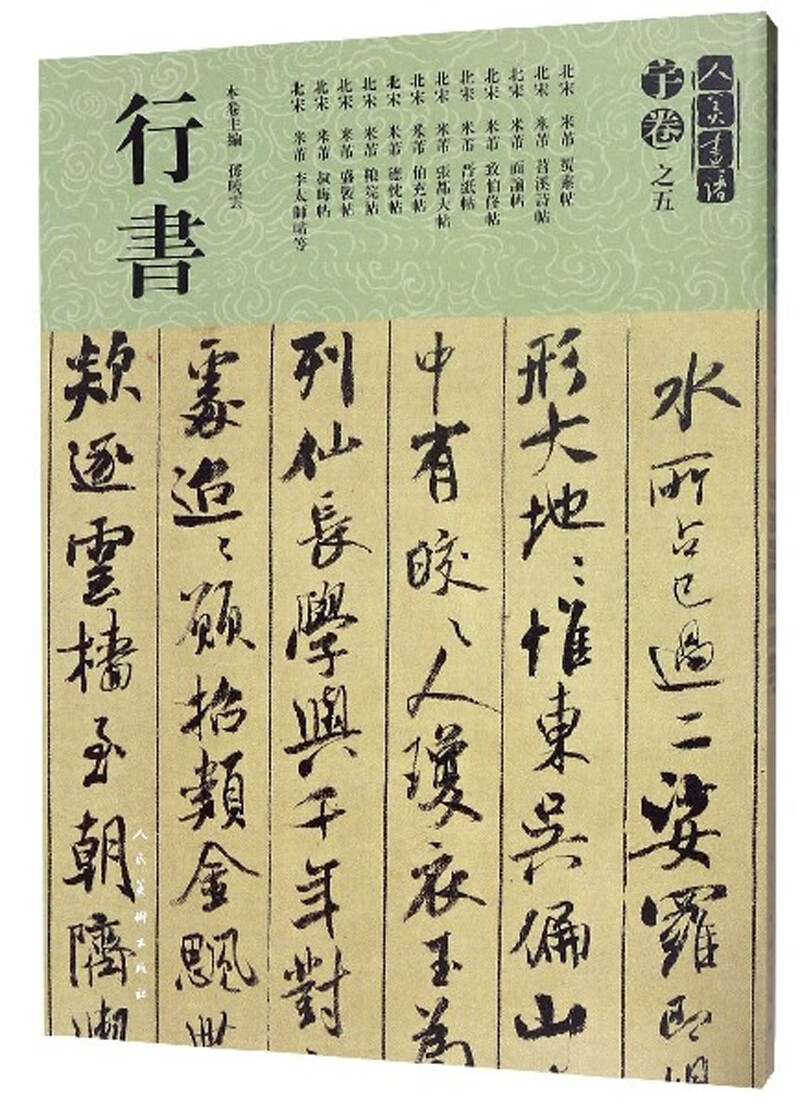 人美書譜
宇卷之五
北宋 米芾 蜀素帖
北宋 米芾 苕溪詩帖
北宋 米芾 面諭帖
北宋 米芾 致伯修帖
北宋 米芾 晉紙帖
北宋 米芾 張都大帖
北宋 米芾 伯充帖
北宋 米芾 德忱帖
北宋 米芾 糧院帖
北宋 米芾 盛製帖
北宋 米芾 叔晦帖
北宋 米芾 李太師帖等
本卷主編 孫曉雲
行書
水所占已過二娑羅即
形大地々惟東吳偏山
中有皎々人瓊衣玉為
列仙長學與千年對
處迢々願招類金飈
欻逐雲檣至朝隮
人民美術出版社